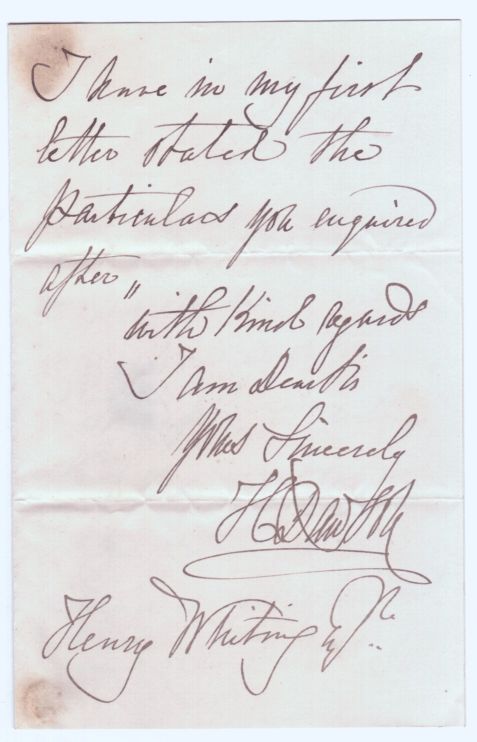 I have in my first
letter stated the
particulars you enquired
after "
with Kind regards
I am Dear Sir
Yours Sincerely
H Dawson
Henry Whiting Esqre